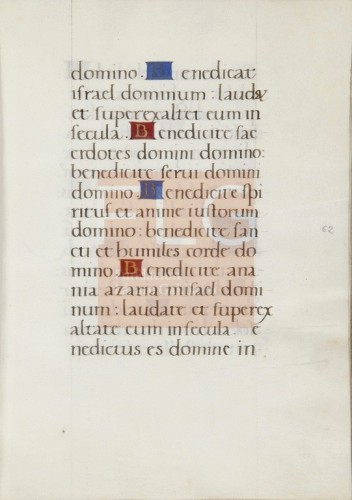 domino. Benedicat
israel dominum: laudet
et superexaltet eum in
secula. Benedicite sac
erdotes domini domino:
benedicite serui domini
domino. Benedicite spi
ritus et anime iustorum
domino: benedicite san
cti et humiles corde do
mino. Benedicite ana
nia azaria misael domi
num: laudate et superex
altate eum in secula. e
nedictus es domine in
62